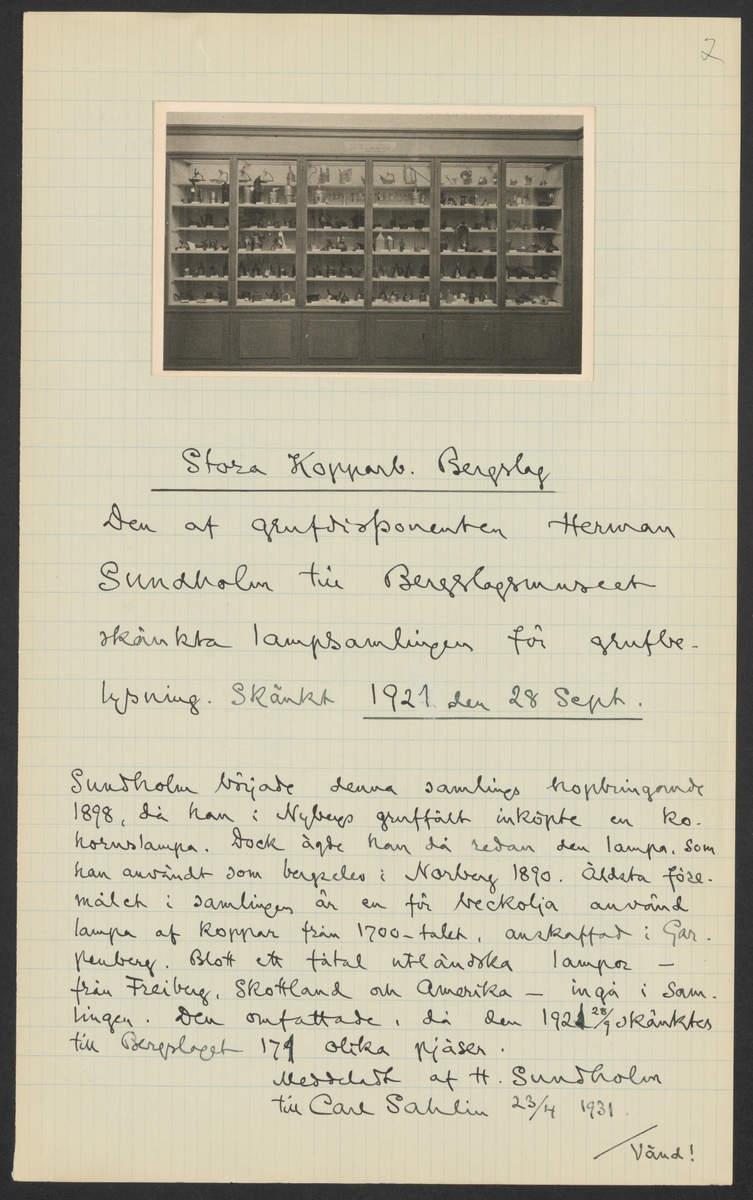 2
Stora Kopparb. Bergslag
Den af grufdisponenten Herman
Sundholm till Bergslagsmuseet
skänkta lampsamlingen för grufbe-
lysning. Skänkt 1921 den 28 Sept.
Sundholm började denna samlings hopbringande
1898, då han i Nybergs gruffält inköpte en ko-
hornslampa. Dock ägde han då redan den lampa, som
han användt som bergselev i Norberg 1890. Äldsta före-
målet i samlingen är en för beckolja använd
lampa af koppar från 1700-talet, anskaffad i Gar-
penberg. Blott ett fåtal utländska lampor —
från Freiberg, Skottland och Amerika — ingå i sam-
lingen. Den omfattade, då den 1921 28/9 skänktes
till Bergslaget 171 olika pjäser.
Meddeladt af H. Sundholm
till Carl Sahlin 23/4 1931.
Vänd!